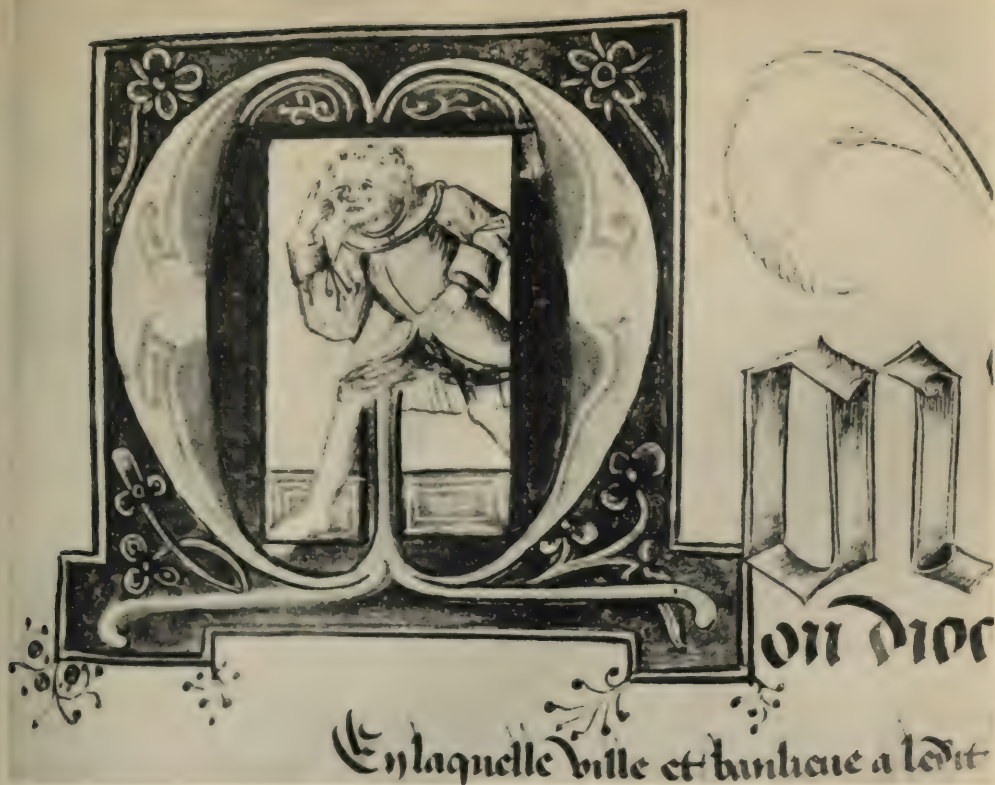 on dioc
En laquelle ville et banlieue a ledit